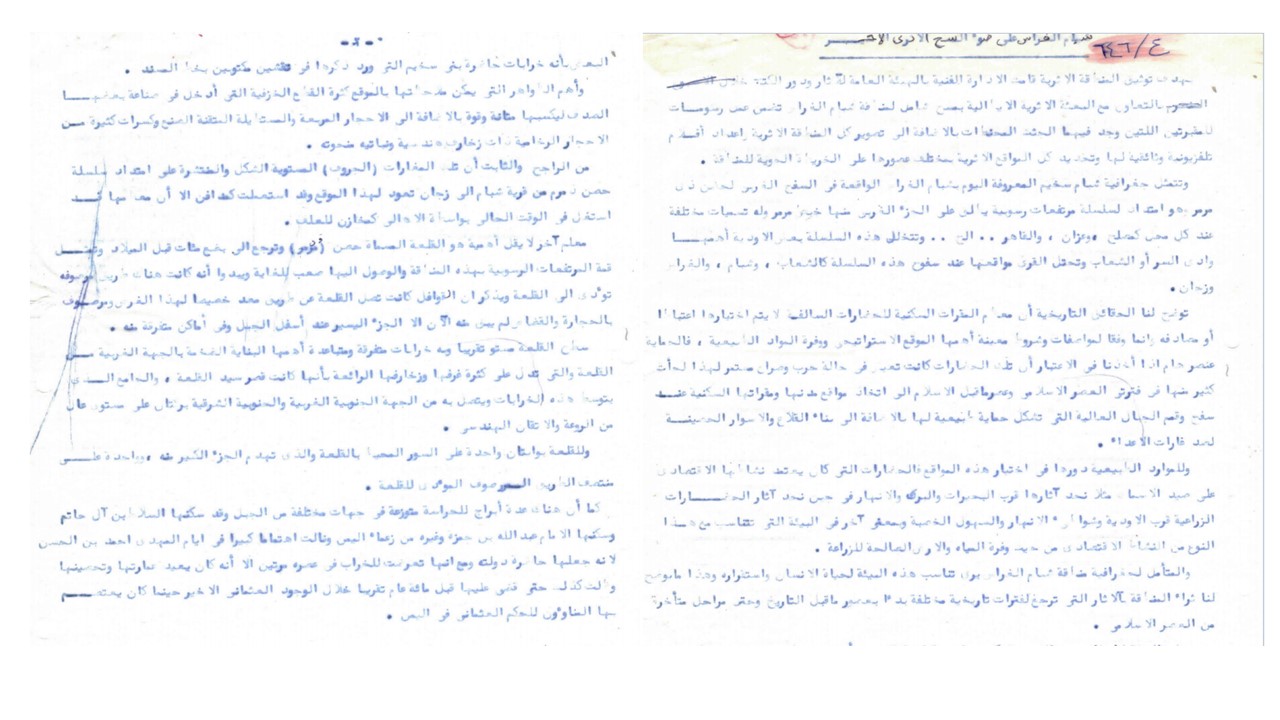 شبام الغراس على ضوء المسح الاثري الاخير
٦٤٦/٤
بهدف توثيق المنطقة الاثرية قامت الادارة الفنية بالهيئة العامة للآثار ودور الكتب خلال
بالتعاون مع البعثة الاثرية الايطالية بمسح شامل لمنطقة شبام الغراس تضمن عمل رسومات
للمقبرتين اللتين وجد فيهما الجثث المحنطات بالاضافة الى تصوير كل المنطقة الاثرية واعداد أفلام
تلفزيونية وثائقية لها وتحديد كل المواقع الاثرية بمختلف عصورها على الخريطة الجوية للمنطقة .
وتتمثل جغرافية شبام سخيم المعروفة اليوم بشبام الغراس الواقعة في السفح الغربي لحصن ذي
مرمر وهو امتداد لسلسلة مرتفعات رسوبية يطلق على الجزء الغربي منها خيم مرمر وله تسميات مختلفة
عند كل محل كصلح ، وعزان ، والقاهر . . الخ . . وتتخلل هذه السلسلة بعض الاودية أهمها
وادى السر أو الشعاب وتحتل القرى مواقعها عند سفوح هذه السلسلة كالشعاب ، وشبام ، والغراس
وزجان .
توضح لنا الحقائق التاريخية أن معظم المقرات السكنية للحضارات السالفة لا يتم اختيارها اعتباطا
أو مصادفه وانما وفقا لمواصفات وشروط معينة أهمها الموقع الاستراتيجي ووفرة المواد الطبيعية ، فالحماية
عنصر هام اذا أخذنا في الاعتبار أن تلك الحضارات كانت تعيش في حالة حرب وصراع مستمر لهذا لجأت
كثير منها في فترتي العصر الاسلامي وعصر ماقبل الاسلام الى اتخاذ مواقع مدنها ومقراتها السكنية عند
سفح وقمم الجبال العالية التي تشكل حماية طبيعية لها بالاضافة الى بناء القلاع والاسوار الحصينة
لصد غارات الاعداء .
وللموارد الطبيعية دورها في اختيار هذه المواقع فالحضارات التي كان يعتمد نشاطها الاقتصادى
على صيد الاسماك مثلا نجد آثارها قرب البحيرات والبرك والانهار في حين نجد آثار الحضارات
الزراعية قرب الاودية وشواطىء الانهار والسهول الخصبة وبمعنى آخر في البيئة التي تتناسب مع هذا
النوع من النشاط الاقتصادى من حيث وفرة المياه والاراضي الصالحة للزراعة .
والمتأمل لجغرافية منطقة شبام الغراس يرى تناسب هذه البيئة لحياة الانسان واستقراره وهذا مايوضح
لنا ثراء المنطقة بالآثار التي ترجع لفترات تاريخية مختلفة بدءا بعصور ماقبل التاريخ وحتى مراحل متأخرة
من العصر الاسلامي .
- ٢ -
البعض بأنه خرابات حاضرة بني سخيم التي ورد ذكرها في نقشين مكتوبين بخط المسند .
وأهم الظواهر التي يمكن ملاحظتها بالموقع كثرة القطع الخزفية التي أدخل في صناعة بعضها
الصدف ليكسبها متانة وقوة بالاضافة الى الاحجار المربعة والمستطيلة المتقنة الصنع وكسرات كثيرة من
الاحجار الرخامية ذات زخارف هندسية ونباتيه منحوته .
من الراجح والثابت أن تلك المغارات (الجروف) المستوية الشكل والمنتشرة على امتداد سلسلة
حصن ذمرمر من قرية شبام الى زجان تعود لهذا الموقع وقد استعملت كمدافن الا أن معظمها قد
استغل في الوقت الحالي بواسطة الاهالي كمخازن للعلف .
معلم آخر لا يقل أهمية هو القلعة المسماة حصن (ذمرمر) وترجع الى بضع مئات قبل الميلاد وتحتل
قمة المرتفعات الرسوبية بهذه المنطقة والوصول اليها صعب للغاية ويبدوا أنه كانت هناك طريق مرصوفه
تؤدى الى القلعة ويذكر ان القوافل كانت تصل القلعة عن طريق معد خصيصا لهذا الغرض ومرصوف
بالحجارة والقضاض لم يبق منه الآن الا الجزء اليسير عند أسفل الجبل وفي أماكن متفرقة منه .
سطح القلعة مستو تقريبا وبه خرابات متفرقة ومتباعدة أهمها البناية الضخمة بالجهة الغربية من
القلعة والتي تدل على كثرة غرفها وزخارفها الرائعة بأنها كانت قصر سيد القلعة ، والجامع الذى
يتوسط هذه الخرابات ويتصل به من الجهة الجنوبية الغربية والجنوبية الشرقية بركتان على مستو عال
من الروعة والاتقان الهندسي .
وللقلعة بوابتان واحدة على السور المحيط بالقلعة والذى تهدم الجزء الكبير منه ، وواحدة على
منتصف الطريق المرصوف المؤدى للقلعة .
كما أن هناك عدة أبراج للحراسة متوزعة في جهات مختلفة من الجبل وقد سكنها السلاطين آل حاتم
وسكنها الامام عبد الله بن حمزة وغيره من زعماء اليمن ونالت اهتماما كبيرا في ايام المهدى احمد بن الحسن
لانه جعلها حاضرة دولته ومع انها تعرضت للخراب في عصره مرتين الا أنه كان يعيد عمارتها وتحصينها
وظلت كذلك حتى قضي عليها قبل مائة عام تقريبا خلال الوجود العثماني الاخير حينما كان يعتصم
بها المناوئون للحكم العثماني في اليمن .